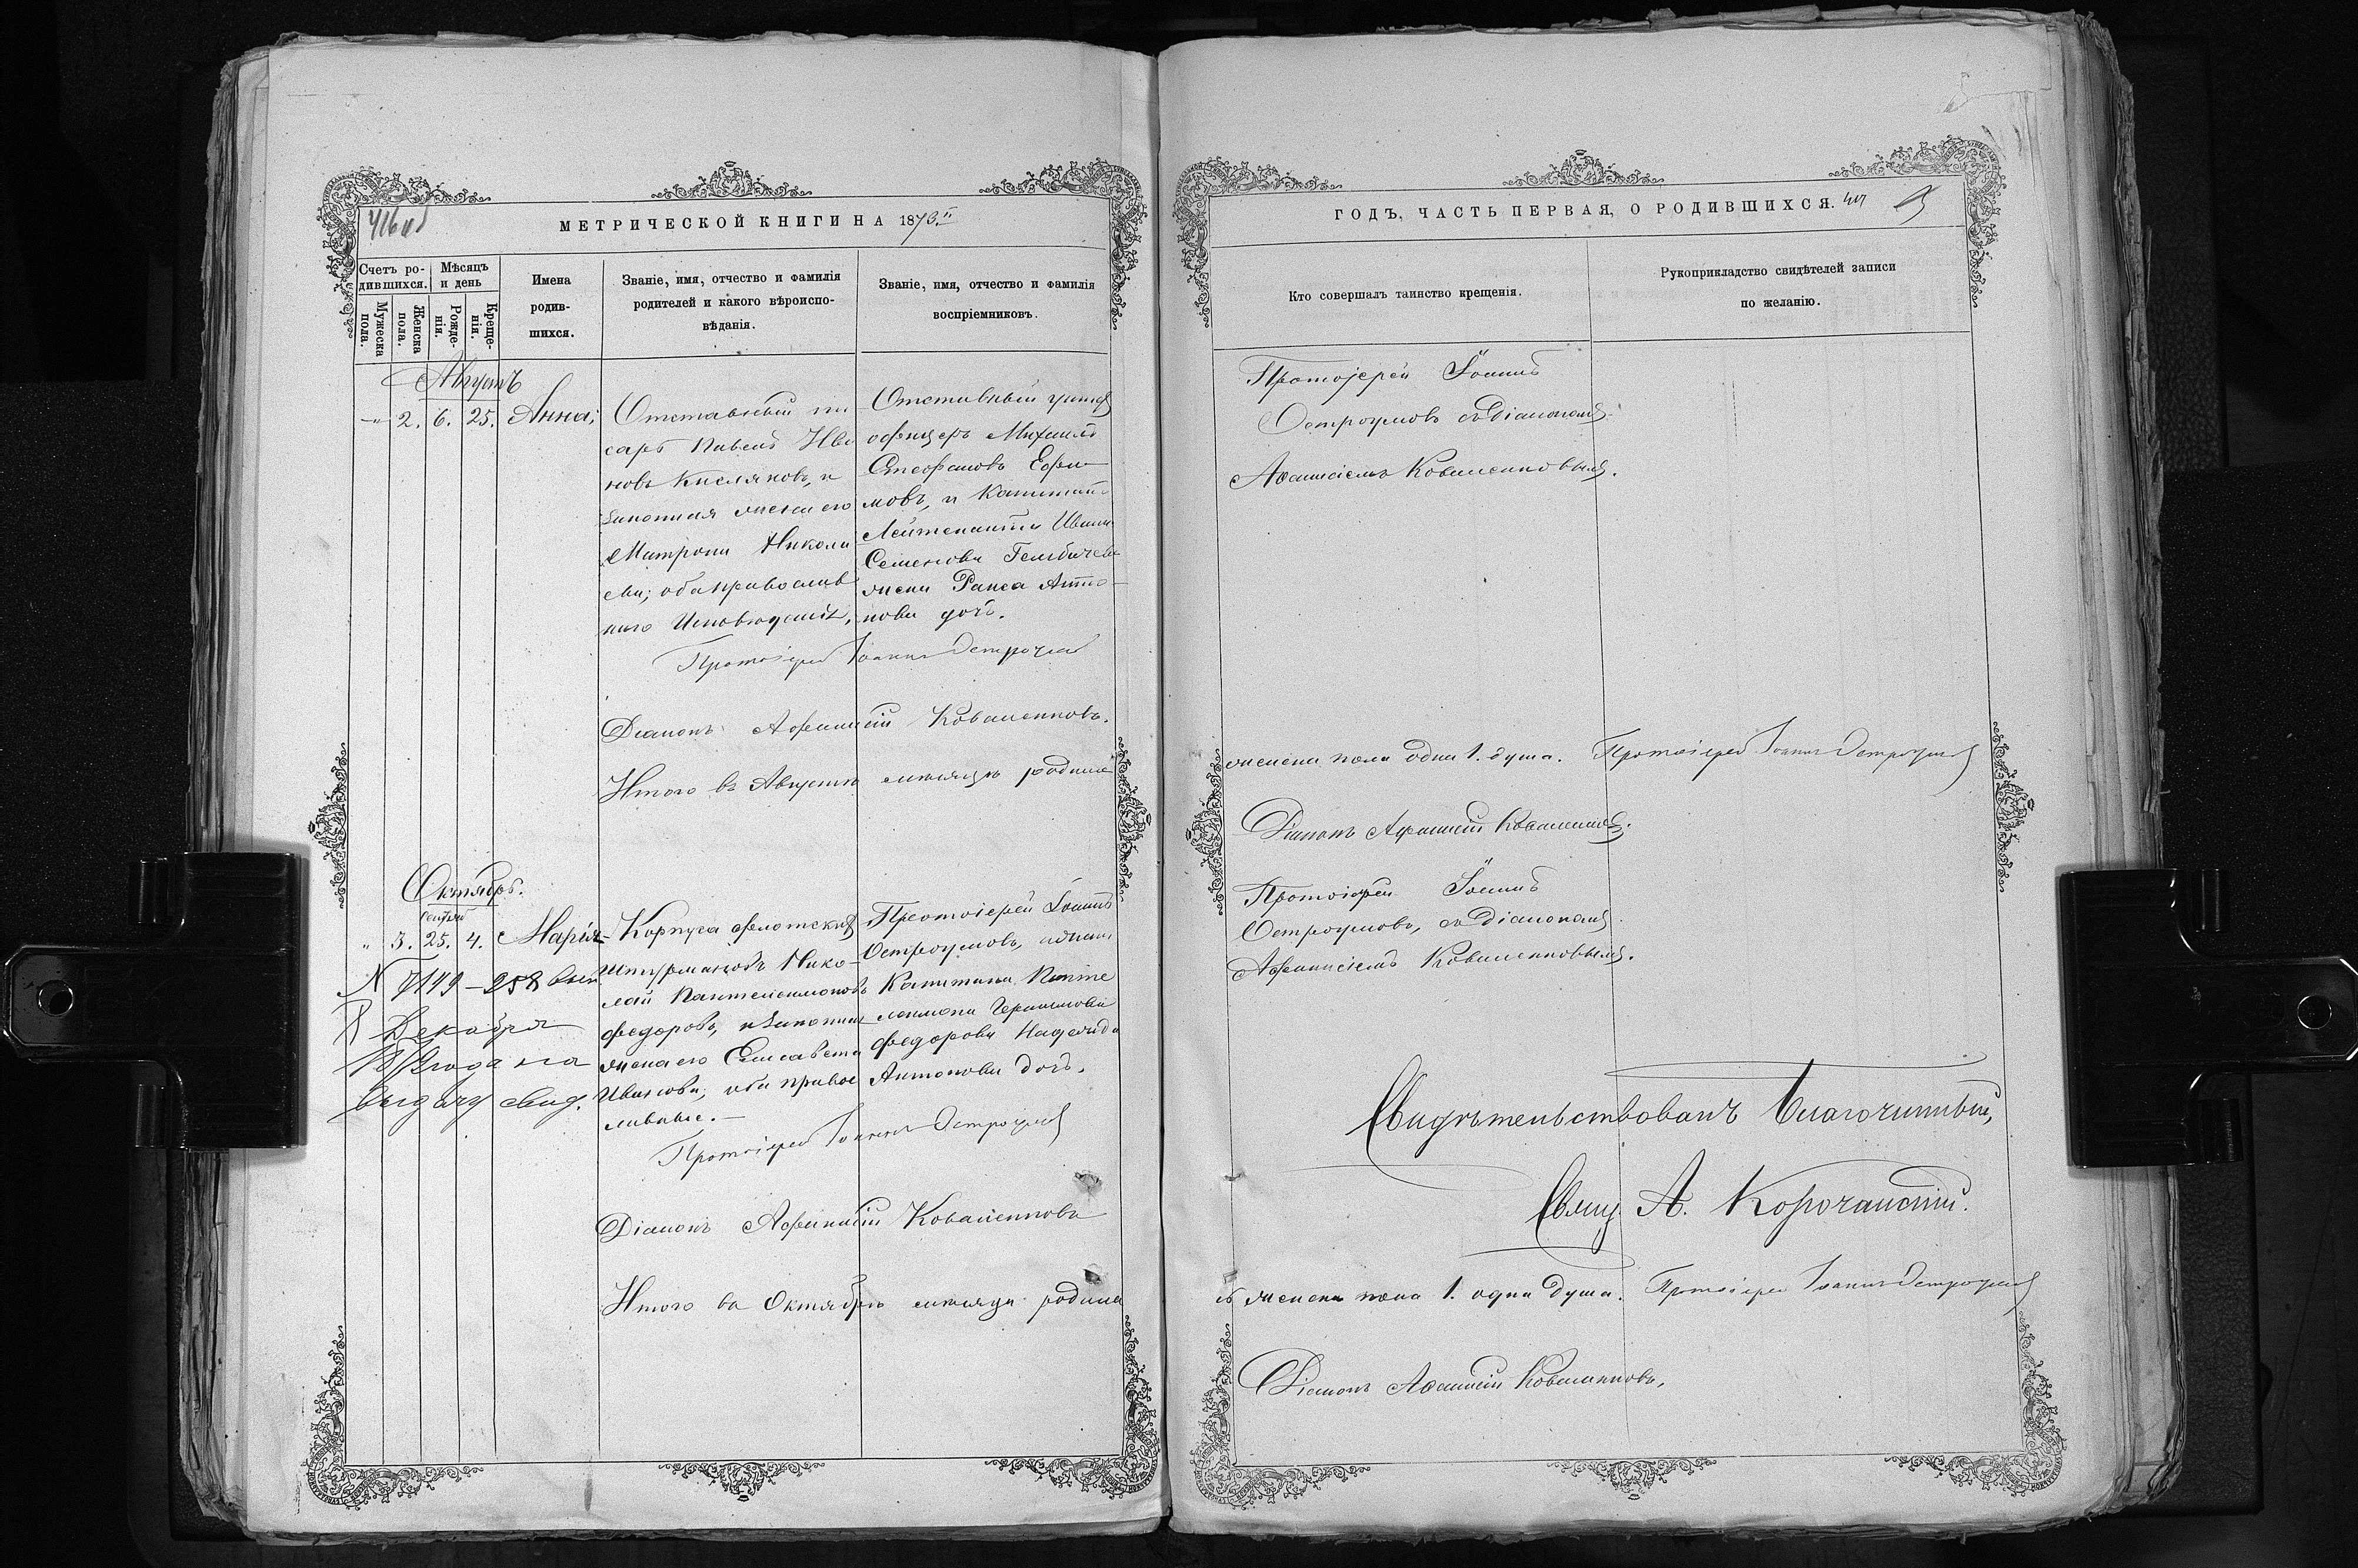 МЕТРИЧЕСКОЙ КНИГИ НА 1873.й
Счетъ ро-
дившихся.
Мѣсяцъ
и день
Мужеска
пола.
Женска
пола.
Рожде-
нія.
Креще-
нія.
Имена
родив-
шихся.
Званіе, имя, отчество и фамилія
родителей и какого вѣроиспо-
вѣданія.
Званіе, имя, отчество и фамилія
воспріемниковъ.
Августъ
2. 6. 25. Анна;
Отставный пи
сарь Павелъ Ива
новъ Кисляковъ, и
законная жена его
Матрона Никола
ева; оба православ
наго Исповѣданія,
Отставный унтеръ
офицеръ Михаилъ
Стефановъ Ефи-
мовъ, и Капитанъ
Лейтенанта Ивана
Семенова
жена Раиса Анто-
нова дочь.
Протоіерей Іоаннъ Остроумовъ
Діаконъ Афанасій Коваленковъ.
Итого въ Августѣ мѣсяцѣ родила
Октябрь.
Сентяб
" 3. 25. 4. Марія-
Корпуса флотскихъ
Штурмановъ Нико-
лай Пантелеимоновъ
Федоровъ, и законная
жена его Елисавета
Иванова; оба правос
лавные.-
Протоіерей Іоаннъ
Остроумовъ,
Капитана Панте
леимона
Федорова Надежда
Антонова дочь.
N 7149 - 258
8 Декабря
года на
выдачу свид.
Протоіерей Іоаннъ Остроумовъ
Діаконъ Афанасій Коваленковъ
Итого въ Октябрѣ мѣсяцѣ родила
ГОДЪ, ЧАСТЬ ПЕРВАЯ, О РОДИВШИХСЯ.
Кто совершалъ таинство крещенія.
Рукоприкладство свидѣтелей записи
по желанію.
Протоіерей Іоаннъ
Остроумовъ съ Діакономъ
Афанасіемъ Коваленковымъ.
женска пола одна 1. душа. Протоіерей Іоаннъ Остроумовъ
Діаконъ Афанасій Коваленковъ.
Протоіерей Іоаннъ
Остроумовъ, съ Діакономъ
Афанасіемъ Коваленковымъ.
Свидѣтельствовалъ Благочинный,
Свящ. А. Корочанскій.
женска пола 1. одна душа. Протоіерей Іоаннъ Остроумовъ
Діаконъ Афанасій Коваленковъ,